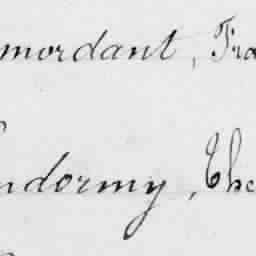 mordant, Fra
ndormy, The